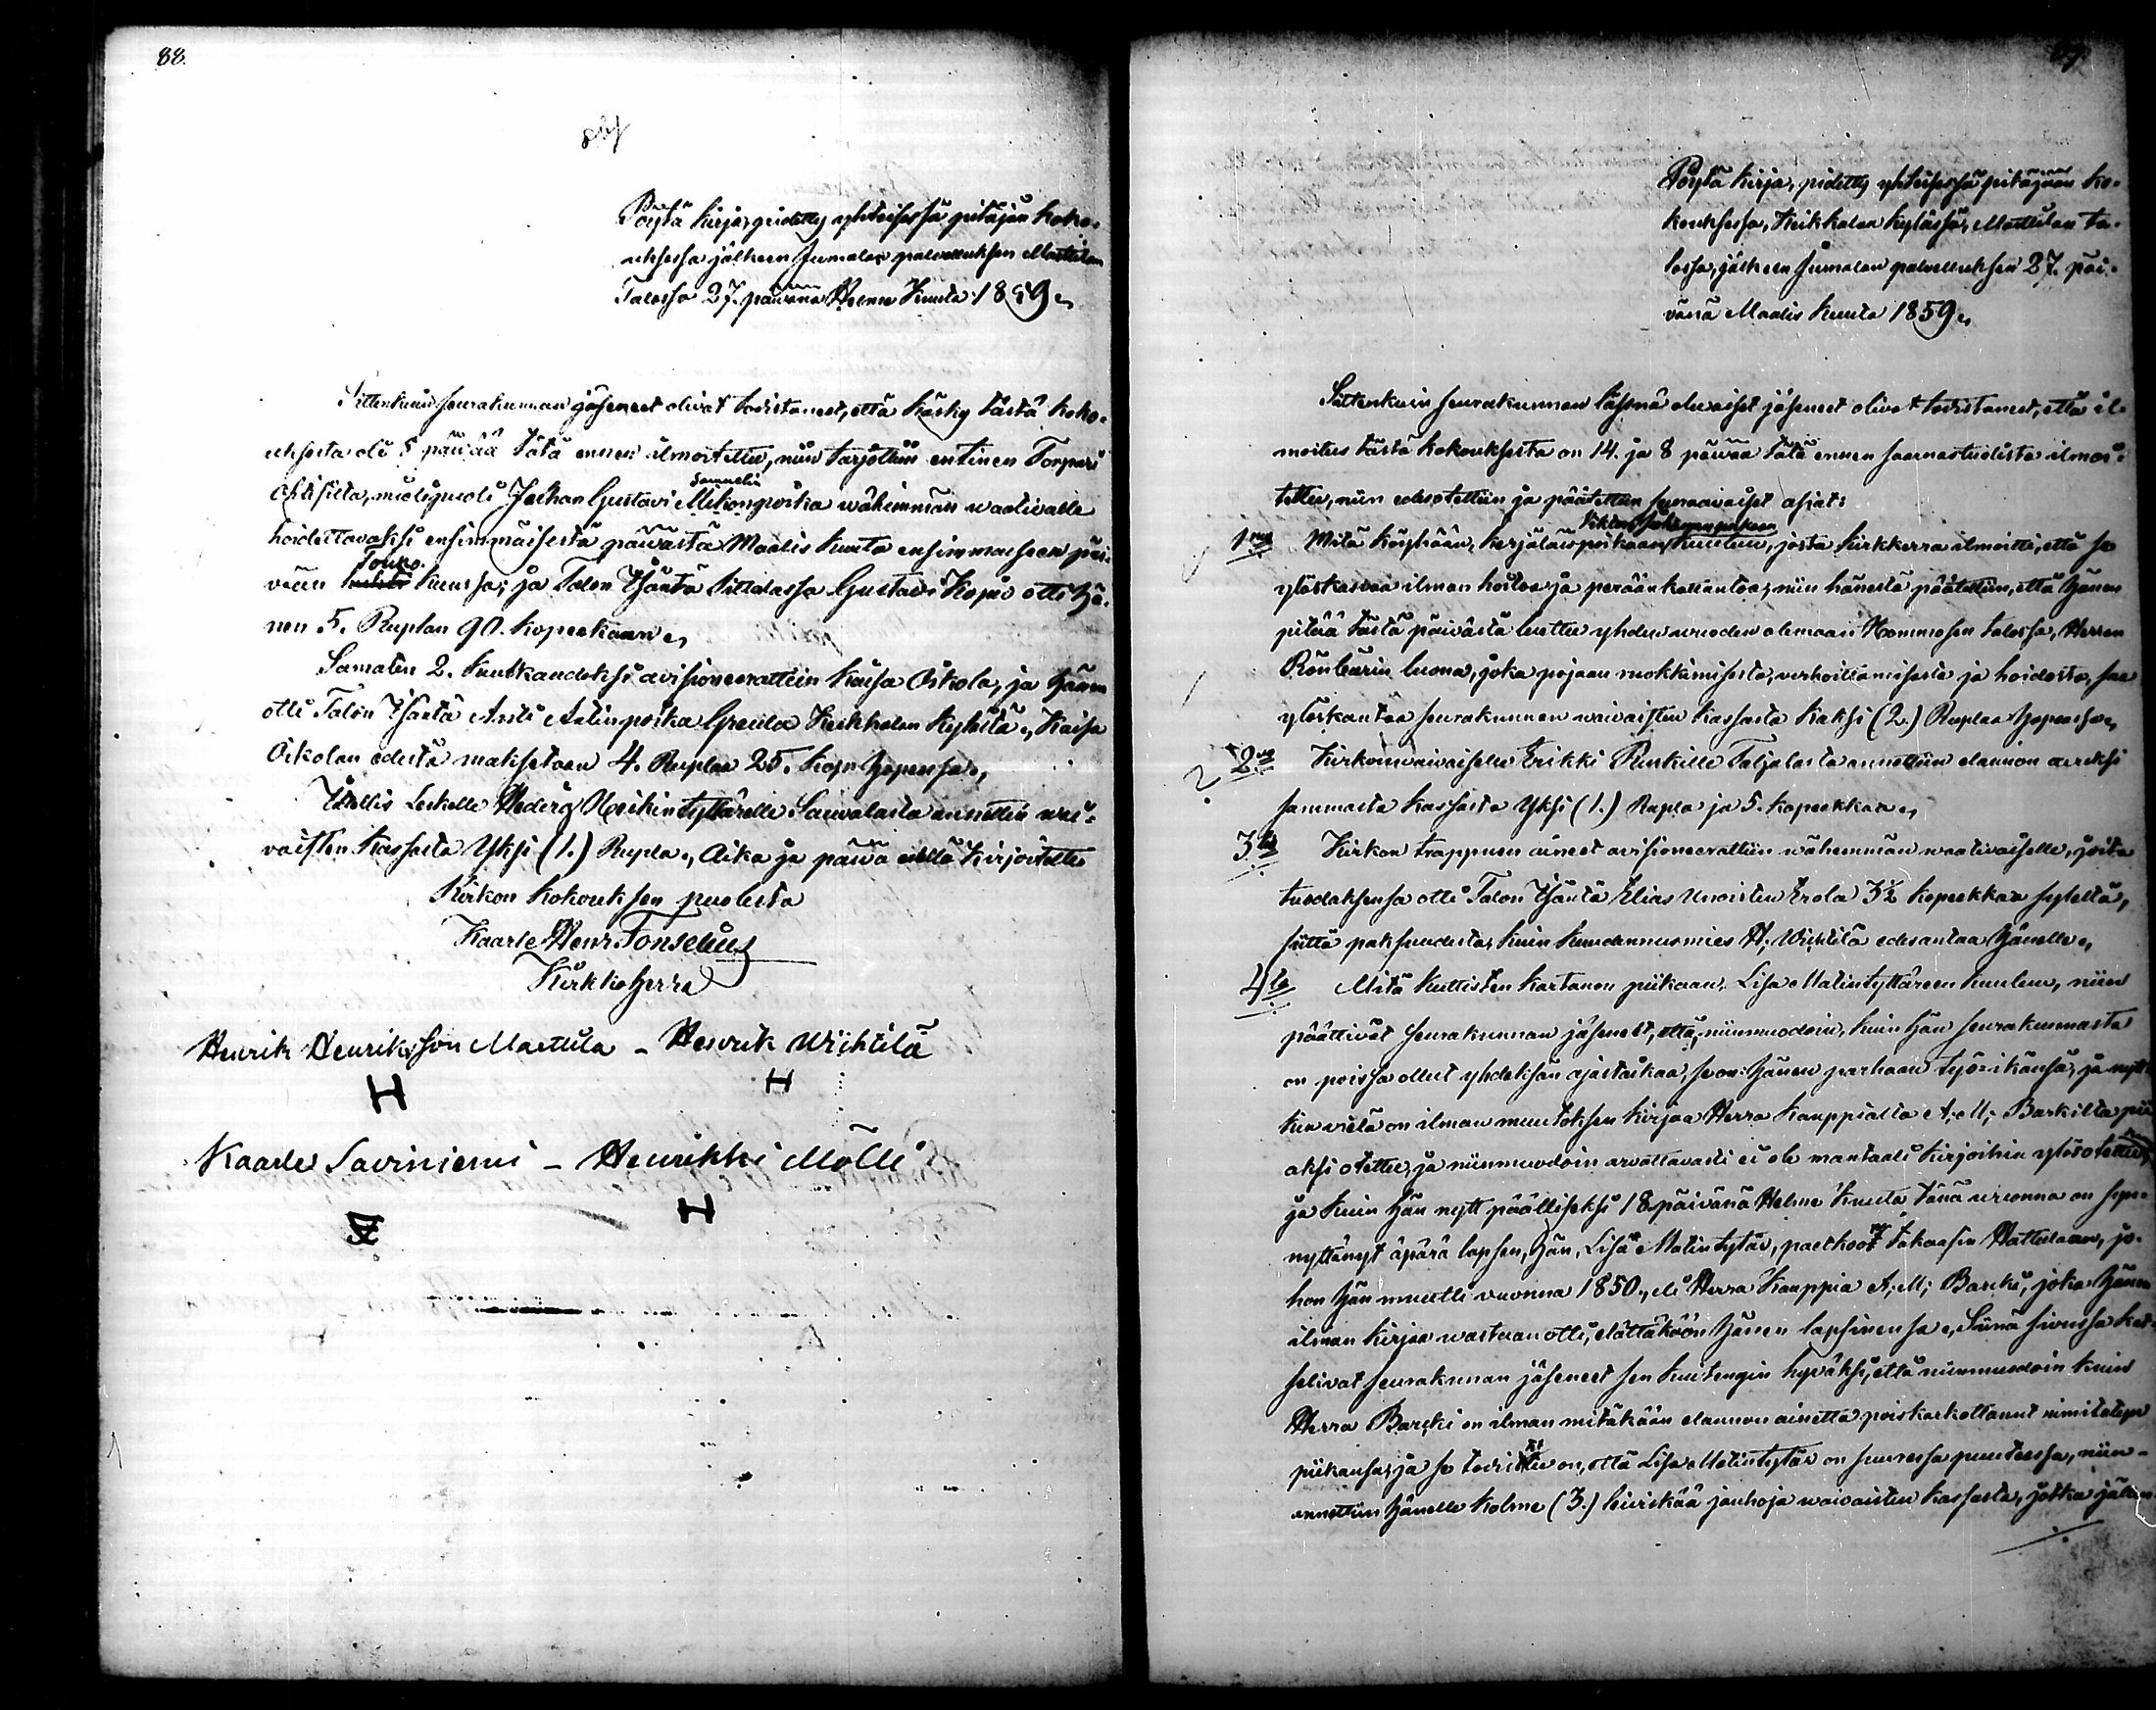 88.
Pöytä kirja, pidetty yhteisessä pitäjän koko-
uksessa jälkeen Jumalan palveluksen Marttilan
Talossa 27. päivänä Helme Kuuta 1859.
Sittenkuin seurakunnan jäsenet olivat todistanet, että käsky tästä koko-
uksesta oli 8 päivää tätä ennen ilmoitettu, niin tarjottiin entinen Torpari
Ahtisilta, mielipuoli Johan Gustavi Samuelin poika wähimmän waativalle
hoidettavaksi ensimmäisestä päivästä Maalis kuuta ensimmäiseen päi-
vään Touko kuussa; ja Talon Isäntä Sittalassa Gustavi Kopio otti hä-
nen 5. Ruplan 90. kopeekaan.
Samaten 2. kuukaudeksi avisioneerattiin Kaisa Oikola, ja hänen
otti Talon Isäntä Anti Antinpoika Greula Keikkalan kylästä. Kaisa
Oikolan edestä maksetaan 4. Ruplaa 25. kop. hopeassa.
Itellis Leskelle Hedvig Heikintyttärelle Sauvalasta annettiin wai-
vaisten Kassasta Yksi (1.) Rupla. Aika ja päivä eellä kirjoitettu
Kirkon kokouksen puolesta
Kaarle Henr. Fonselius
Kirkkoherra
Henrik Henriksson Marttila - Henrik Wichtilä
H H
Kaarle Saviniemi - Henrikki Mölli
H
Pöytä kirja, pidetty yhteisessä pitäjään ko-
kouksessa, Keikkalan kylässä, Marttilan ta-
lossa, jälkeen Jumalan palvelluksen 27. päi-
vänä Maalis Kuuta 1859.
Sittenkuin seurakunnan läsnä olevaiset jäsenet olivat todistanet, että il-
moitus tästä kokouksesta on 14. ja 8 päivää tätä ennen saarnastuolista ilmoi-
tettu, niin edesotettiin ja päätettiin seuraavaiset asiat:
1mo Mitä köyhään, kerjäläispoikaan kuuluu, josta kirkkerra ilmoitti, että se
ylöskasvaa ilman hoitoa ja perään katsantoa, niin hänestä päätettiin, että hänen
pitää tästä päivästä luettu yhden vuoden olemaan Hommosen talossa, Herran
Rönbärin luona, joka pojaan ruokkimisesta, verhoittamisesta ja hoidosta, saa
ylöskantaa seurakunnan waivaisten kassasta kaksi (2.) Ruplaa hopeassa.
2do Kirkonvaivaiselle Erikki Runkille Taljalasta annettiin elannon avuksi
sammasta kassasta Yksi (1.) Rupla ja 5. kopeekkaa.
3tio Kirkon trappuen aineet avisioneerattiin wähemmän waativaiselle, joita
tuodaksensa otti Talon Isäntä Elias Unoistu Erola 3½ kopeekkaa syleltä,
siittä paksuudesta, kuin kuudennusmies H. Wichtilä edesantaa hänelle.
4to Mitä Kuttisten Kartanon piikaan, Lisa Matintyttäreen kuuluu, niin
päättivät seurakunnan jäsenet, että, niinmuodoin, kuin hän seurakunnasta
on poissa ollut yhdeksän ajastaikaa, se on: hänen parhaan työ-ikänsä, ja nytt
kun vielä on ilman muutoksen kirjaa Herra kauppialta A. M. Barkilta pii
aksi otettu, ja niinmuodoin arvattavasti ei ole mantaali kirjoihin ylösotettu,
ja kuin hän nytt päälliseksi 18 päivänä Helme Kuuta tänä wuonna on syn-
nyttänyt äpärä lapsen, hän, Lisa Matintytär, palatkoot takaasin Hattulaan, jo-
hon hän muutti vuonna 1850, eli Herra Kauppia A. M. Barcki, joka hänen
ilman kirjaa wastaan otti, elättäköön hänen lapsinensa. Siinä sivussa kat-
selivat seurakunan jäsenet sen kuitengin hyväksi, että niinmuodoin kuin
Herra Barcki on ilman mitäkään elannon ainetta poiskarkottanut nimitetyn
piikansa, ja se todistettu on, että Lisa Matintytär on suuressa puuteessa, niin
annettiin hänelle kolme (3.) leiviskää jauhoja waivaisten kassasta, jotka jälkeen